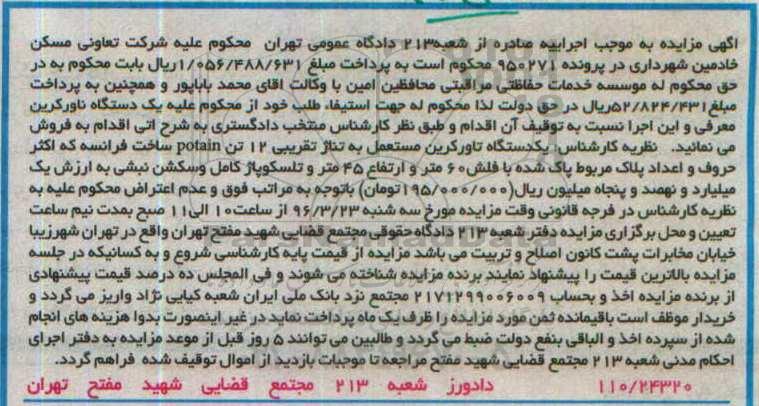 آگهی مزایده به موجب اجراییه صادره از شعبه۲۱۳ دادگاه عمومی تهران محکوم علیه شرکت تعاونی مسکن
خادمین شهرداری در پرونده ۹۵۰۲۷۱ محکوم است به پرداخت مبلغ ۱/۰۵۶/۴۸۸/۶۳۱ریال بابت محکوم به در
حق محکوم له موسسه خدمات حفاظتی مراقبتی محافظین امین با وکالت اقای محمد باباپور و همچنین به پرداخت
مبلغ۵۲/۸۲۴/۴۳۱ریال در حق دولت لذا محکوم له جهت استیفاء طلب خود از محکوم علیه یک دستگاه ناورکرین
معرفی و این اجرا نسبت به توقیف آن اقدام و طبق نظر کارشناس منتخب دادگستری به شرح اتی اقدام به فروش
می نمائید. نظریه کارشناس: یکدستگاه تاورکرین مستعمل به تناژ تقریبی ۱۲ تن potain ساخت فرانسه که اکثر
حروف و اعداد پلاک مربوط پاک شده با فلش۶۰ متر و ارتفاع ۴۵ متر و تلسکوپاژ کامل وسکشن نبشی به ارزش یک
میلیارد و نهصد و پنجاه میلیون ریال(۱۹۵/۰۰۰/۰۰۰تومان) باتوجه به مراتب فوق و عدم اعتراض محکوم علیه به
نظریه کارشناس در فرجه قانونی وقت مزایده مورخ سه شنبه ۹۶/۳/۲۳ از ساعت۱۰ الی۱۱ صبح بمدت نیم ساعت
تعیین و محل برگزاری مزایده دفتر شعبه ۲۱۳ دادگاه حقوقی مجتمع قضایی شهید مفتح تهران واقع در تهران شهرزیبا
خیابان مخابرات پشت کانون اصلاح و تربیت می باشد مزایده از قیمت پایه کارشناسی شروع و به کسانیکه در جلسه
مزایده بالاترین قیمت را پیشنهاد نمایند برنده مزایده شناخته می شوند و فی المجلس ده درصد قیمت پیشنهادی
از برنده مزایده اخذ و بحساب ۲۱۷۱۲۹۹۰۰۶۰۰۹ مجتمع نزد بانک ملی ایران شعبه کیایی نژاد واریز می گردد و
خریدار موظف است باقیمانده ثمن مورد مزایده را ظرف یک ماه پرداخت نماید در غیر اینصورت بدوا هزینه های انجام
شده از سپرده اخذ و الباقی بنفع دولت ضبط می گردد و طالبین می توانند ۵ روز قبل از موعد مزایده به دفتر اجرای
احکام مدنی شعبه ۲۱۳ مجتمع قضایی شهید مفتح مراجعه تا موجبات بازدید از اموال توقیف شده فراهم گردد.
۱۱۰/۲۴۳۲۰ دادورز شعبه ۲۱۳ مجتمع قضایی شهید مفتح تهران